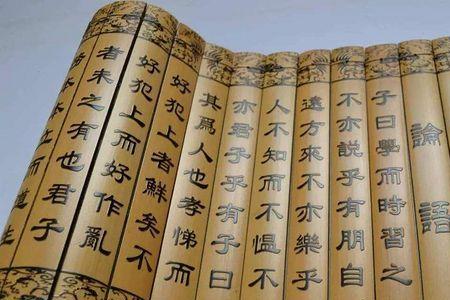 論語
子曰學而時習之
不亦說乎有朋自
遠方來不亦樂乎
人不知而不愠不
亦君子乎有子曰
其爲人也孝悌而
好犯上者鮮矣不
好犯上而好作亂
者未之有也君子
本本立而道生